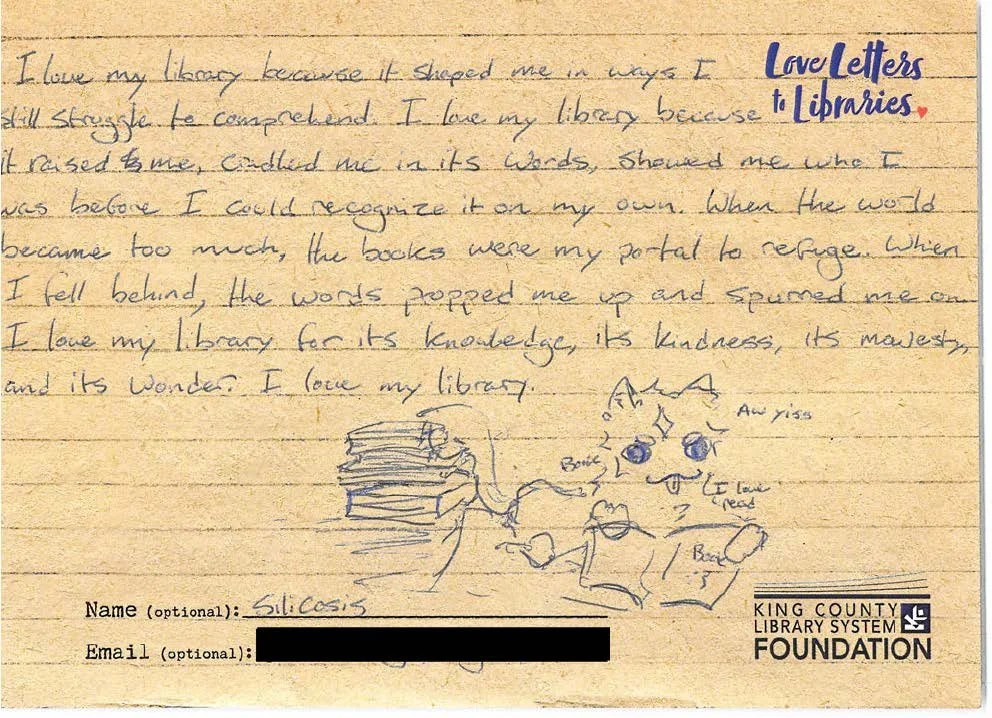 I love my library because it shaped me in ways I
still struggle to comprehend. I love my library because
it raised me, cradled me in its words, showed me who I
was before I could recognize it on my own. When the world
became too much, the books were my portal to refuge. When
I fell behind, the words propped me up and spurred me on.
I love my library for its knowledge, its kindness, its majesty,
and its wonder. I love my library.
Love Letters
to Libraries
Aw yiss
I love
read
Name (optional): Silicosis
Email (optional):
KING COUNTY
LIBRARY SYSTEM
FOUNDATION